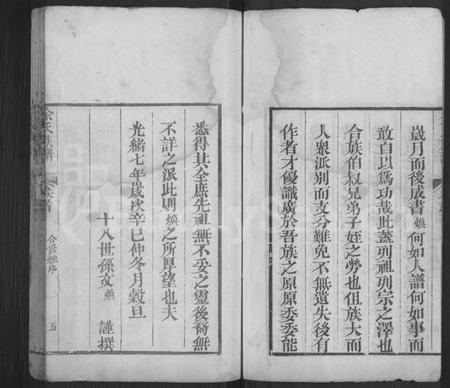 歲月而後成書煥何如人譜何如事而
敢自以為功哉此蓋列祖列宗之澤也
合族伯叔兄弟子姪之勞也但族大而
人衆派別而支分難免不無遺失後有
作者才優識廣於吾族之原原委委能
悉得其全庶先祖無不妥之靈後裔無
不詳之派此則煥之所厚望也夫
光緒七年歲次辛巳仲冬月穀旦
十八世孫文煥 謹撰
余氏族譜
合修總序
五